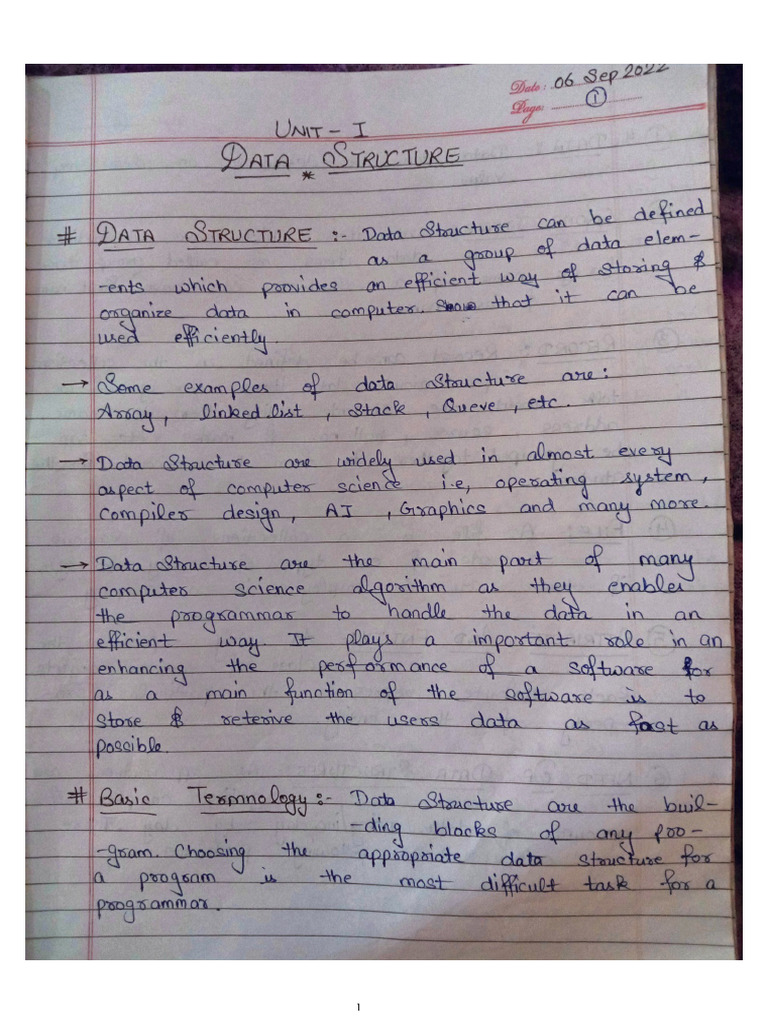 Date: 06 Sep 2022
Page: 1
UNIT - I
DATA * STRUCTURE
# DATA STRUCTURE :- Data Structure can be defined
as a group of data elem-
-ents which provides an efficient way of storing &
organize data in computer. that it can be
used efficiently.
→ Some examples of data structure are:
Array, linked.list, Stack, Queve, etc.
→ Data Structure are widely used in almost every
aspect of computer science i.e, operating system,
compiler design, AI, Graphics and many more.
→ Data Structure are the main part of many
computer science algorithm as they enables
the programmar to handle the data in an
efficient way. It plays a important role in an
enhancing the performance of a software for
as a main function of the software is to
store & reterive the users data as fast as
possible.
# Basic Termnology :- Data Structure are the buil-
-ding blocks of any pro-
-gram. Choosing the appropriate data structure for
a program is the most difficult task for a
programmar.
1